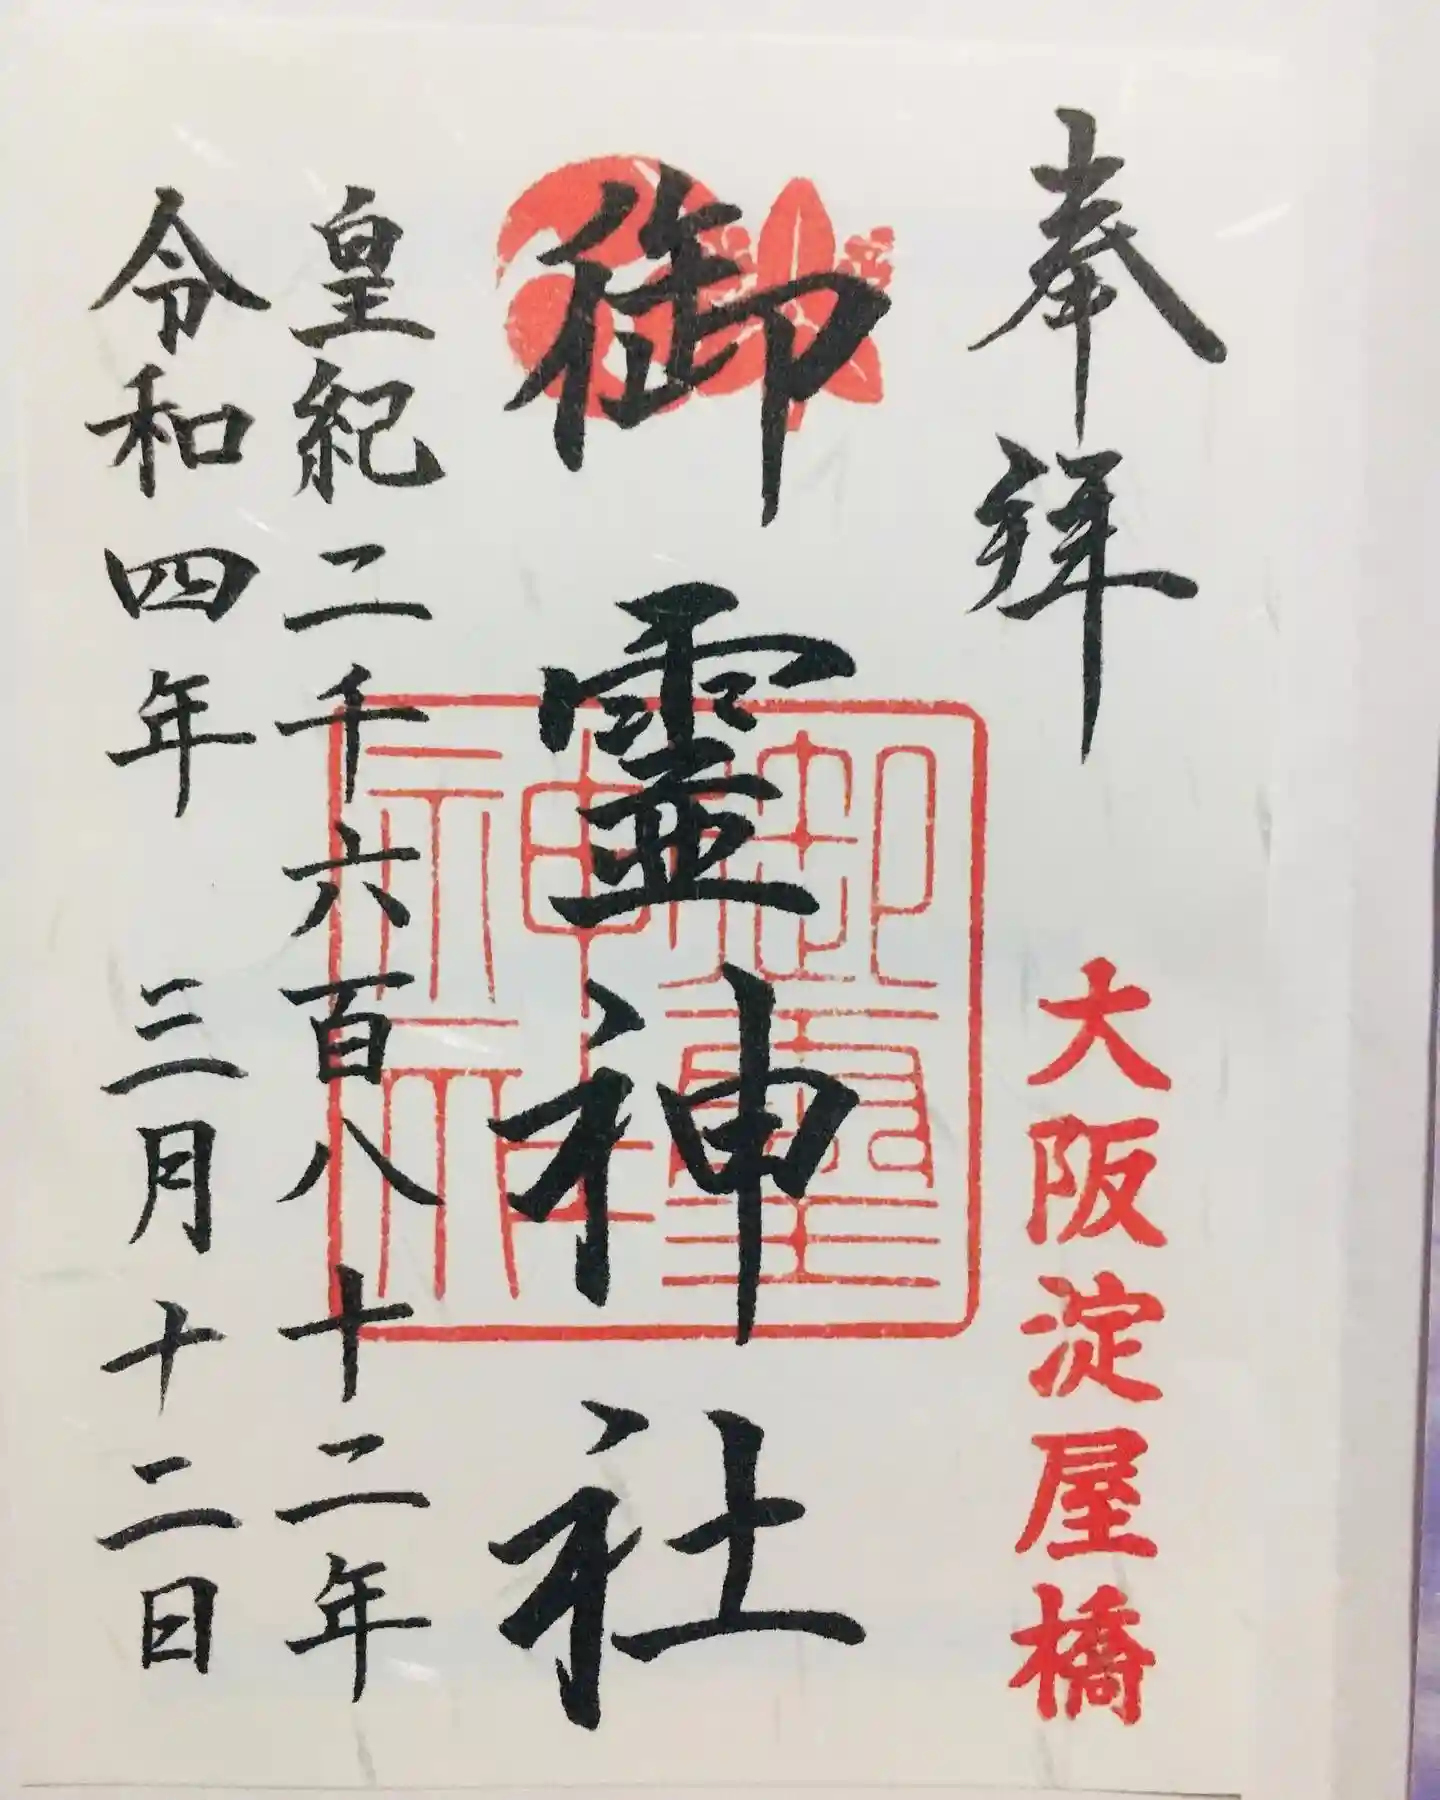 奉拝
大阪淀屋橋
御霊神社
御霊神社
皇紀二千六百八十二年
令和四年 三月十二日